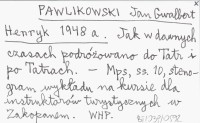 PAWLIKOWSKI Jan Gwalbert
Henryk 1948 a. Jak w dawnych
czasach podróżowano do Tatr i
po Tatrach. – Mps, ss. 10, steno-
gram wykładu na kursie dla
instruktorów turystycznych w
Zakopanem. WHP.